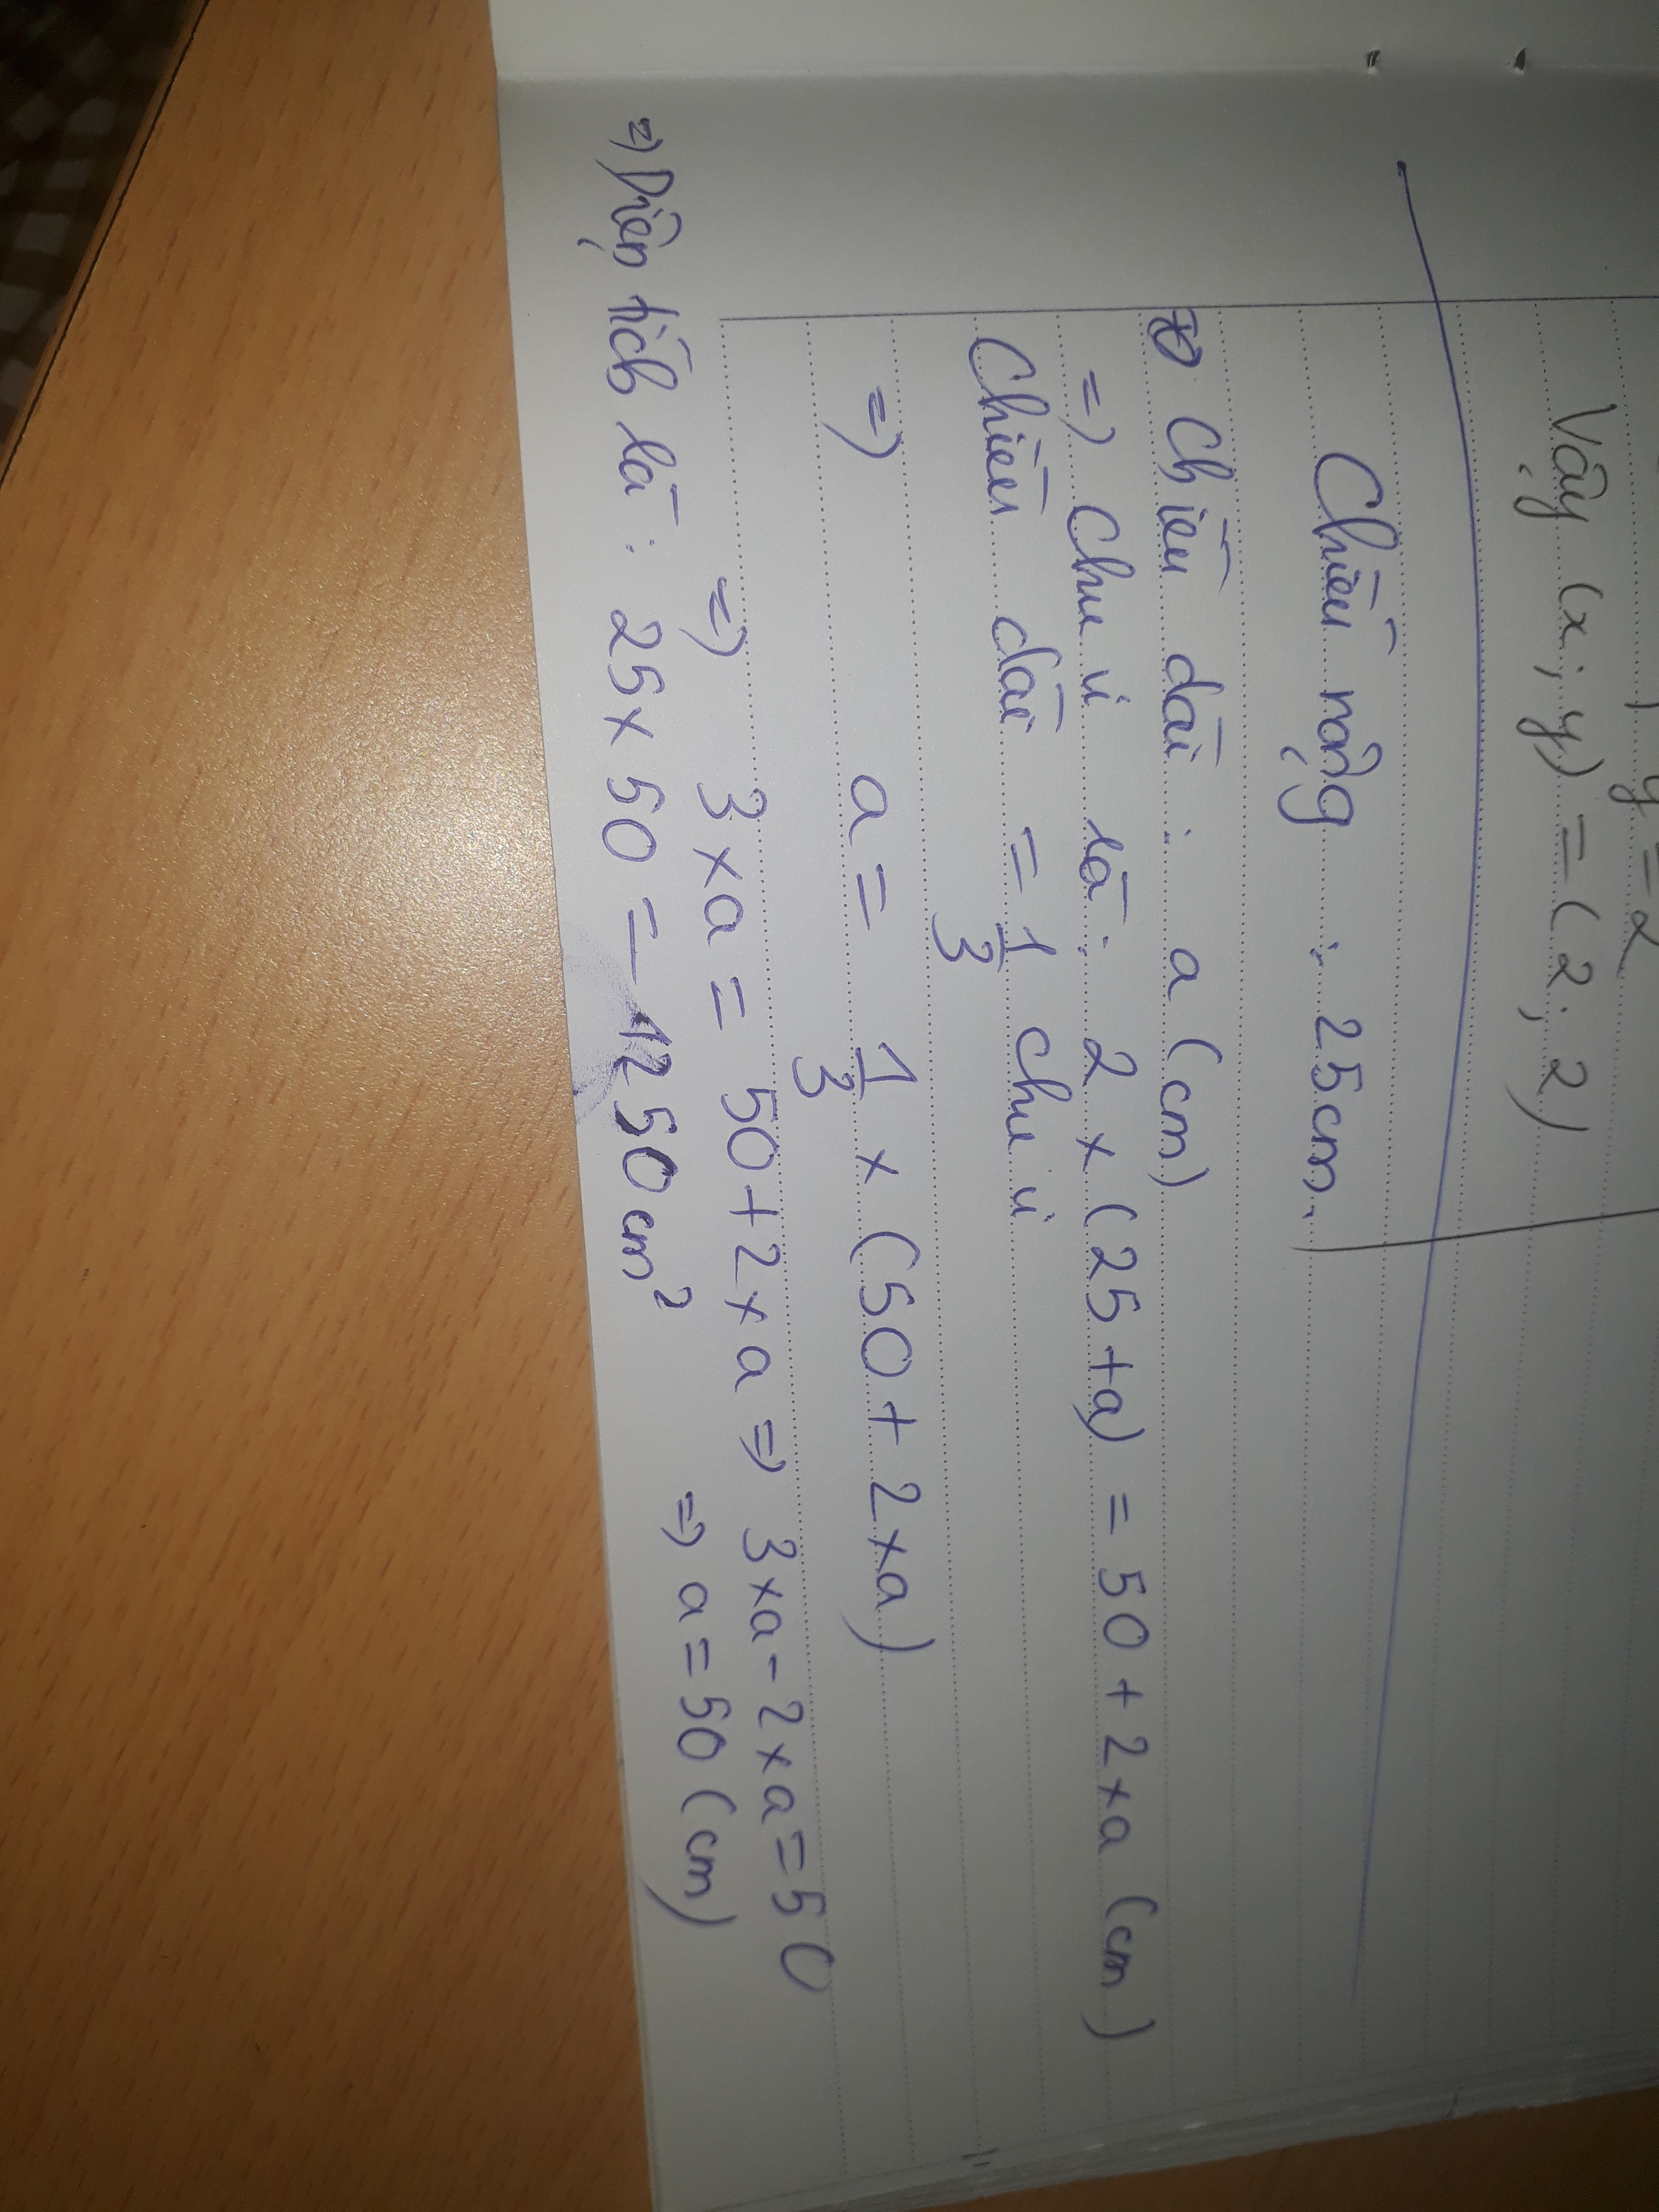 y = 2
Vậy (x; y) = (2; 2)
Chiều rộng : 25cm.
Chiều dài : a (cm)
=> Chu vi là : 2 x (25 + a) = 50 + 2 x a (cm)
Chiều dài = 1/3 chu vi
=> a = 1/3 x (50 + 2 x a)
=> 3 x a = 50 + 2 x a => 3 x a - 2 x a = 50
=> a = 50 (cm)
=> Diện tích là : 25 x 50 = 1250 cm²